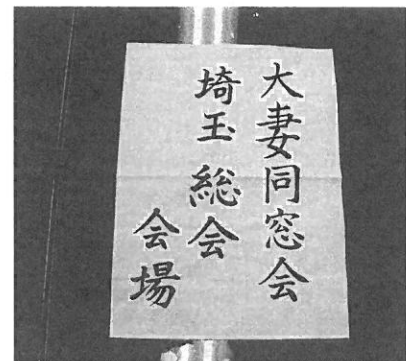 大妻同窓会
埼玉総会
会場